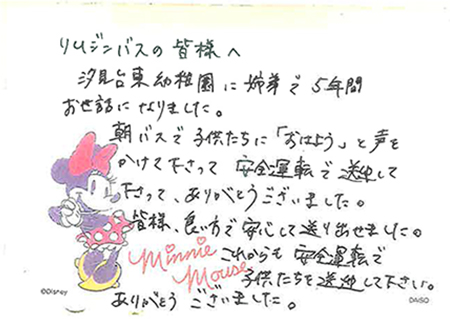 リムジンバスの皆様へ
汐見台東幼稚園に姉弟で5年間
お世話になりました。
朝バスで子供たちに「おはよう」と声を
かけて下さって 安全運転で送迎して
下さって、ありがとうございました。
皆様、良い方で安心して送り出せました。
これからも安全運転で
子供たちを送迎して下さい。
ありがとう ございました。
Minnie
Mouse
©Disney
DAISO